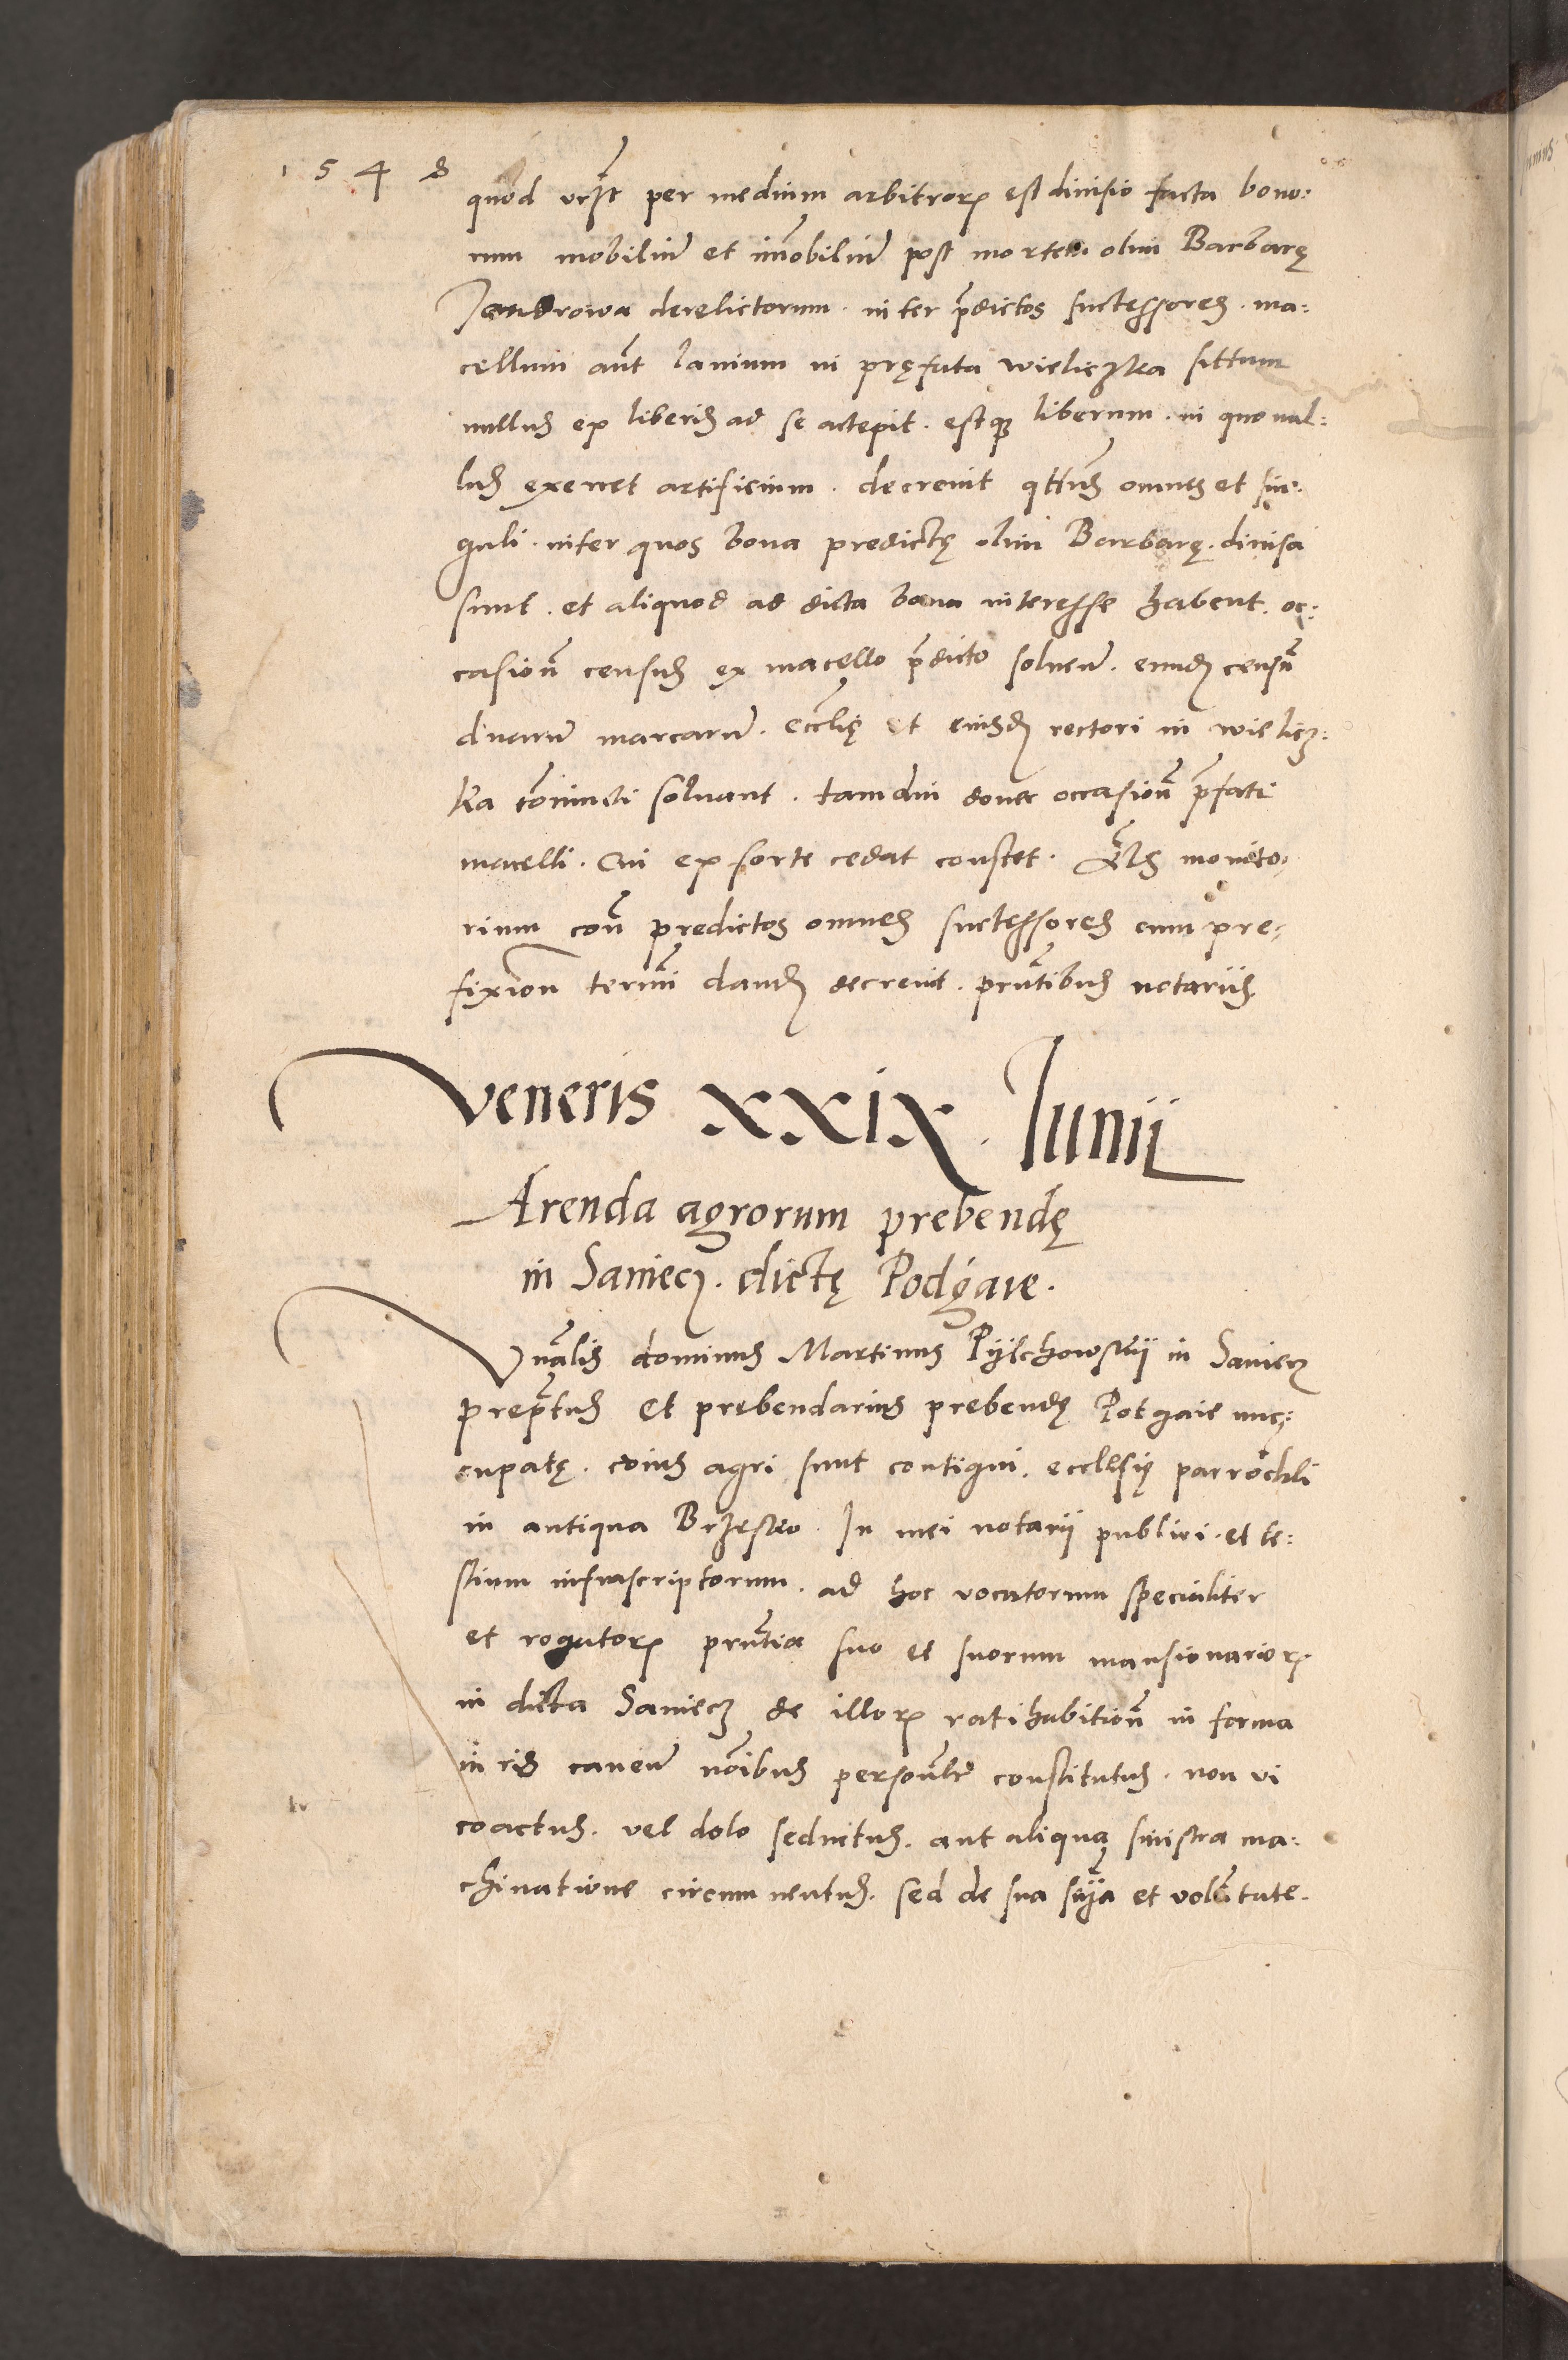 1548
quod per medium arbitror est divisio facta bono:
rum mobiliu et imobiliu post mortem olim Barbarę
Jandrowa derelictorum. inter pdictos successores. ma:
cellum aut lanium in pręfata wieliczka sittum
nullus ex liberis ad se accepit. estq liberum. in quo nul:
lus exercet artificium. decrevit omnes et sin:
guli. inter quos bona predictę olim Barbarę. divisa
sunt. et aliquod ad dicta bona interesse habent. oc:
casion census ex macello pdicto solven. eund censu
duaru marcaru. ecclię et eiusd rectori in wielicz:
ka coniuncti solvant. tamdiu donec occasion pfati
macelli. cui ex sorte cedat constet. monito,
rium con predictos omnes successores cum pre,
fixion termini dand decrevit. prntibus notariis.
Veneris XXIX. Iunii
Arenda agrorum prebendę
in Saniecz. dictę Podgaie.
Vnalis dominus Martinus Pylchowskij in Saniecz
prepstus et prebendarius prebendę Potgaie nuc:
cupatę. cuius agri sunt contigui. ecclesię parrochli
in antiqua Brzesko. In mei notarii publici. et te:
stium infrascriptorum. ad hoc vocatorum specialiter
et rogator prntia suo et suorum mansionarior
in dicta Saniecz de illor ratihabition in forma
iuris caven noibus personlr constitutus. non vi
coactus. vel dolo seductus. aut aliqua sinistra ma:
chinatione circumventus. sed de sua scia et voluntate.